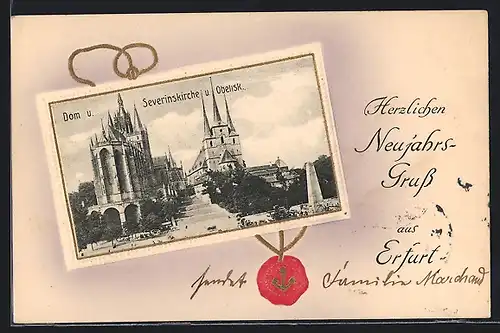 Dom u. Severinskirche u. Obelisk.
Herzlichen
Neujahrs-
Gruß
aus
Erfurt
sendet Familie Marchand